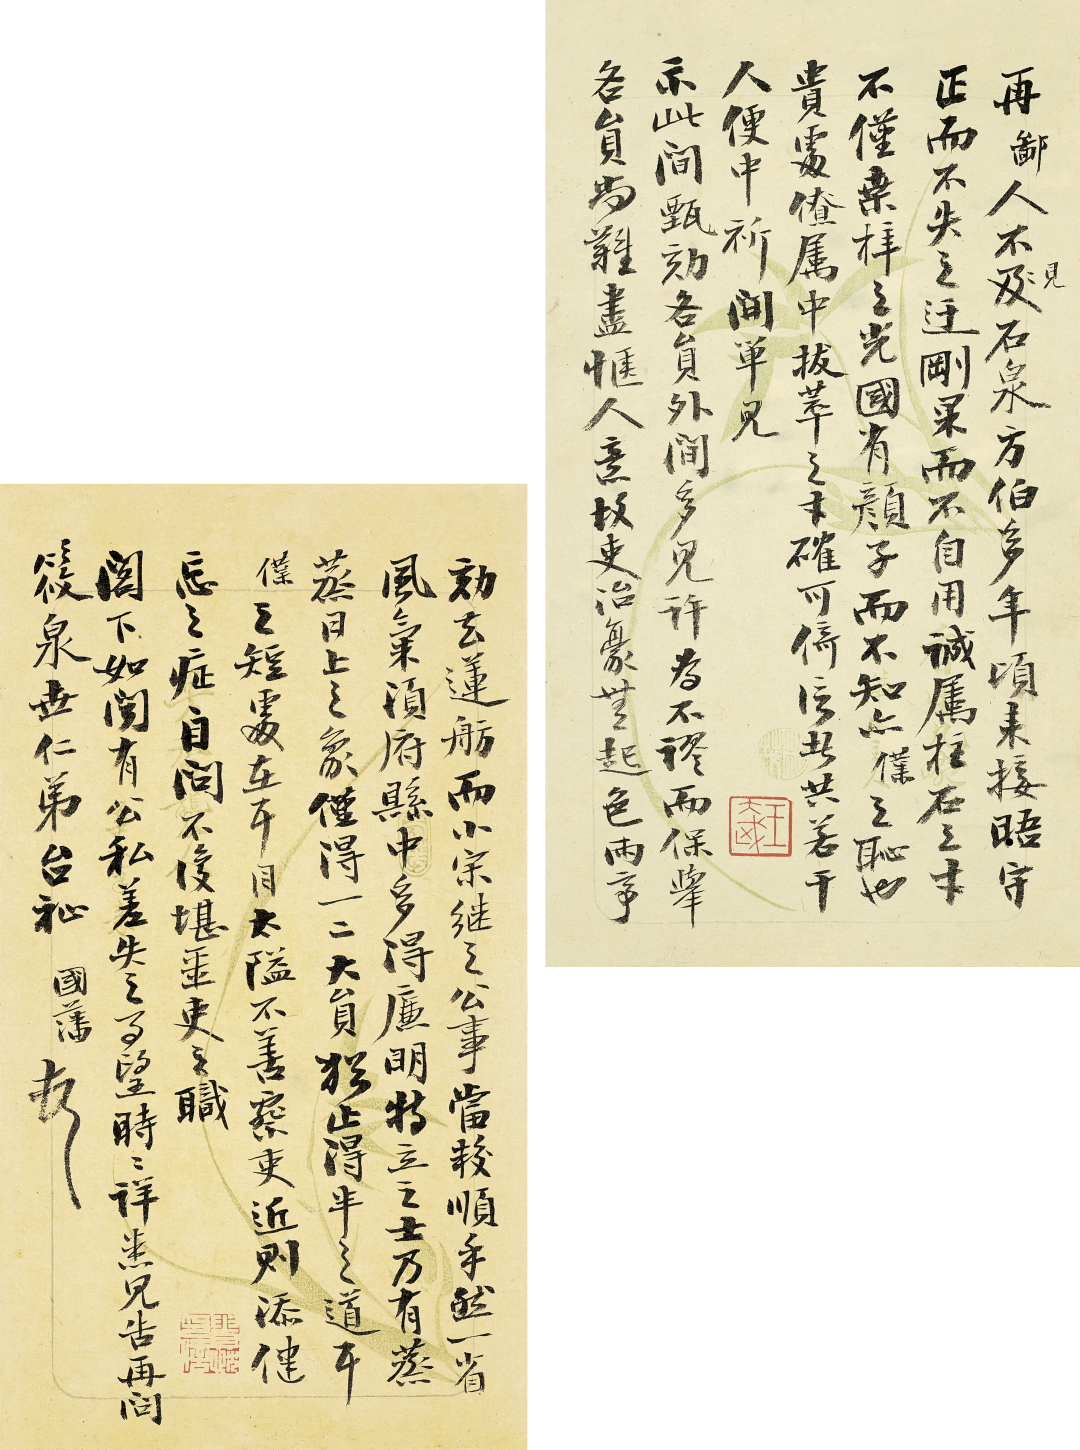 再鄙人不及見石泉方伯多年頃來接晤守
正而不失之迂剛果而不自用誠屬柱石之才
不僅桑梓之光國有顏子而不知亦僕之恥也
貴處僚属中拔萃之才確可倚信者共若干
人便中祈開單見
示此間甄劾各員外間多見許為不謬而保舉
各員尚難盡愜人意故吏治毫無起色兩亭
劾去蓮舫而小宋继之公事當較順手然一省
風氣須府縣中多得廉明特立之士乃有蒸
蒸日上之象僅得一二大員猶止得半之道耳
僕之短處在耳目太隘不善察吏近則添健
忘之症自問不復堪畺吏之職
閣下如聞有公私差失之事望時時詳悉見告再問
筱泉世仁弟台祉 國藩頓